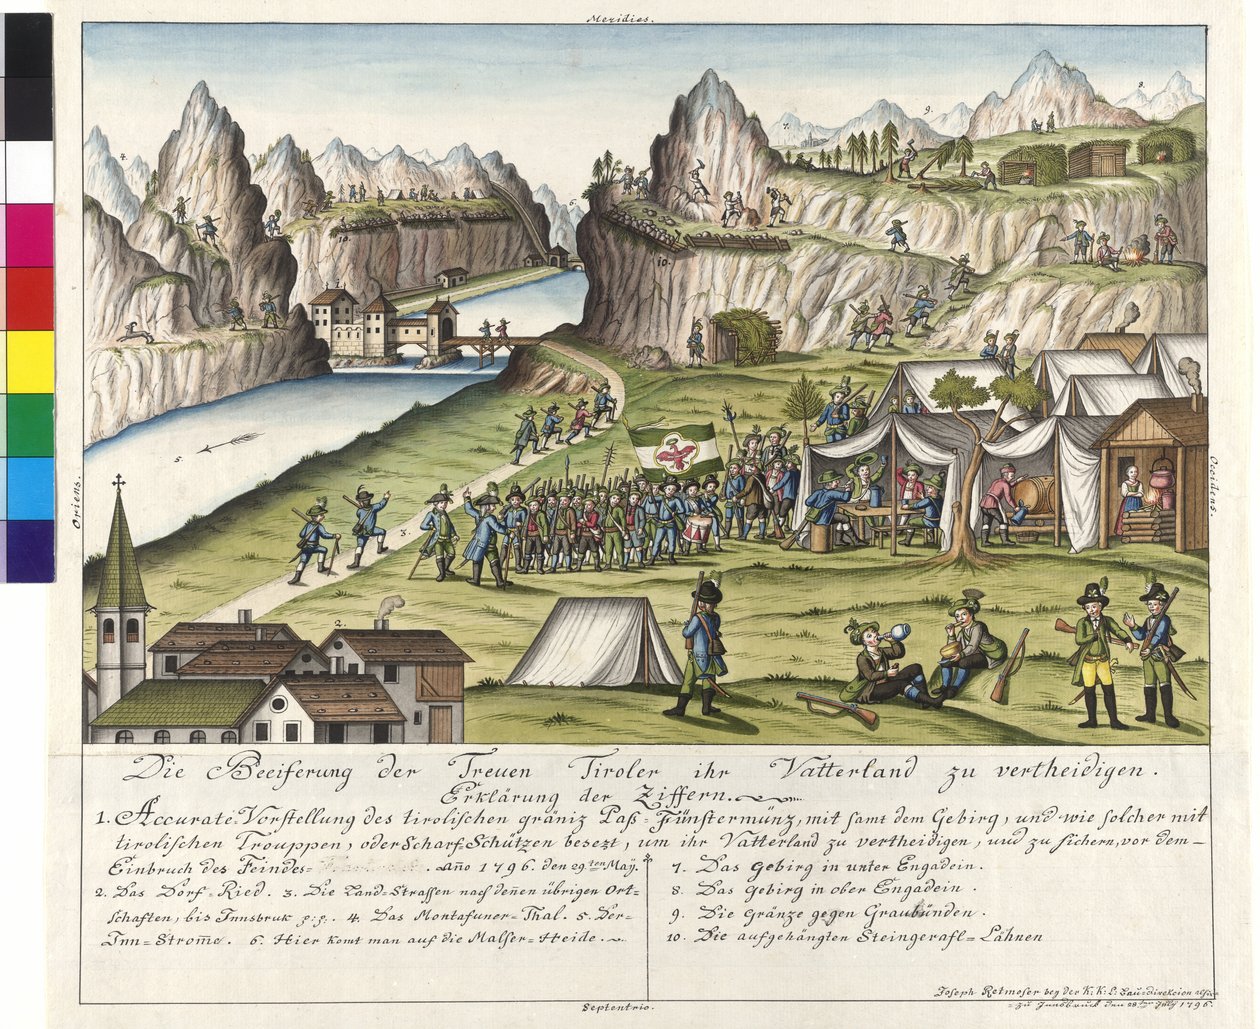 Meridies.
Oriens.
Occidens.
4
7.
9.
8.
6.
10.
10.
1.
5.
3.
2.
Die Beeiferung der Treuen Tiroler ihr Vatterland zu vertheidigen.
Erklärung der Ziffern.
1. Accurate-Vorstellung des tirolischen gräniz Paß-Finstermünz, mit samt dem Gebirg, und wie solcher mit
tirolischen Trouppen, oder Scharf-Schützen besezt, um ihr Vatterland zu vertheidigen, und zu sichern, vor dem-
Einbruch des Feindes- . Año 1796. den 29.ten Maÿ.
2. Das Dorf-Ried. 3. Die Land-Strassen nach denen übrigen Ort-
schaften, bis Innsbruk p:p:. 4. Das Montafuner-Thal. 5. Der-
Inn-Strome. 6. Hier komt man auf die Malser-Heide.
7. Das Gebirg in unter Engadein.
8. Das Gebirg in ober Engadein.
9. Die Gränze gegen Graubünden.
10. Die aufgehängten Steingerafl-Lähnen
Joseph Retmoser bey der K: K: L: Bau-direkcion
zu Innsbruck den 28ten July 1796.
Septentrio.